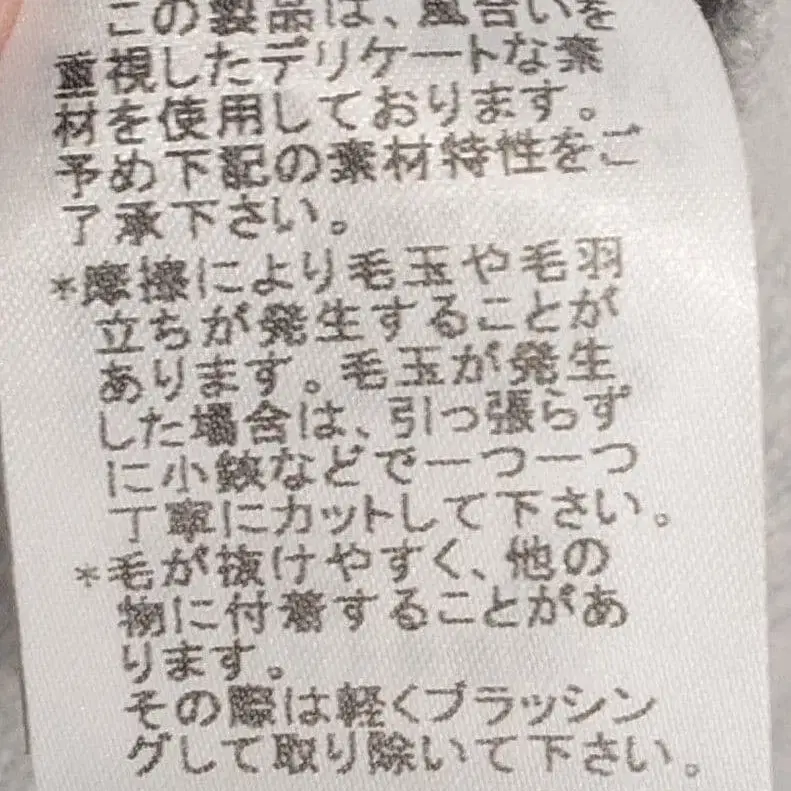 この製品は、風合いを
重視したデリケートな素
材を使用しております。
予め下記の素材特性をご
了承下さい。
*摩擦により毛玉や毛羽
立ちが発生することが
あります。毛玉が発生
した場合は、引っ張らず
に小鋏などで一つ一つ
丁寧にカットして下さい。
*毛が抜けやすく、他の
物に付着することがあ
ります。
その際は軽くブラッシン
グして取り除いて下さい。